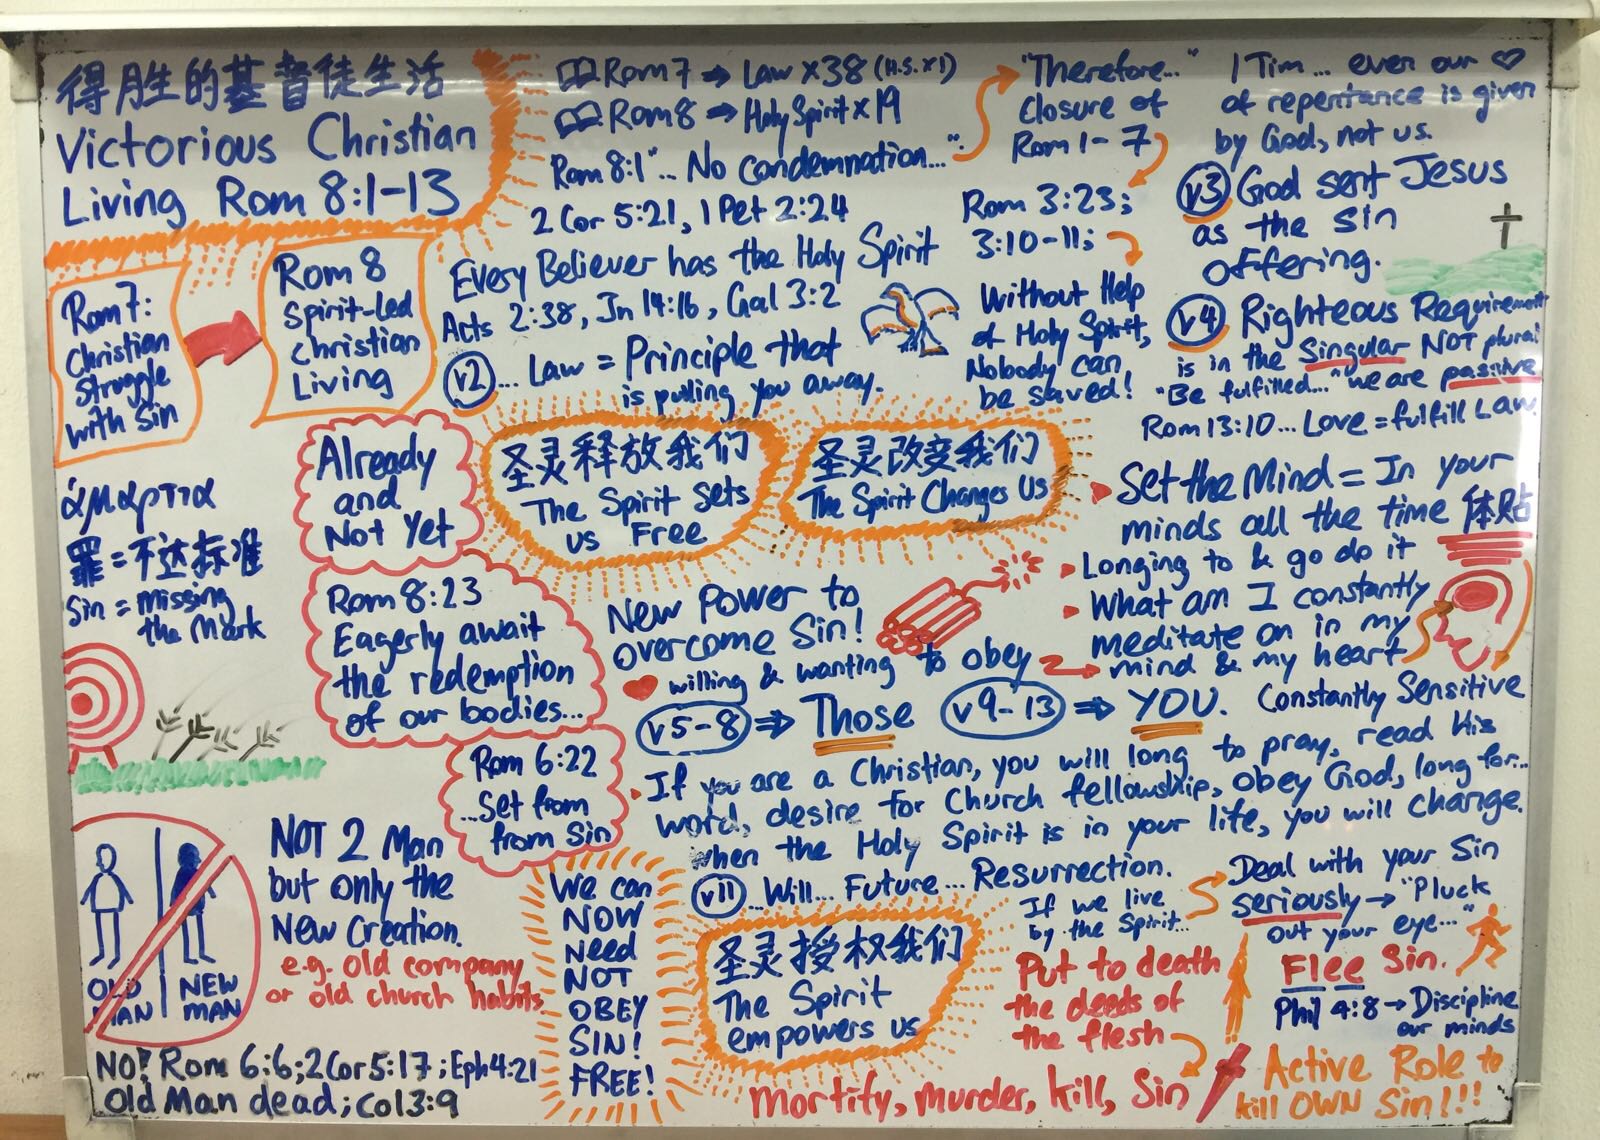 得胜的基督徒生活
Victorious Christian
Living Rom 8:1-13
Rom7 ⇒ Law x38 (H.S. x1)
Rom8 ⇒ Holy Spirit x 19
Rom 8:1 ".. No condemnation..."
2 Cor 5:21, 1 Pet 2:24
"Therefore..."
closure of
Rom 1-7
Rom 3:23;
3:10-11;
Without Help
of Holy Spirit,
Nobody can
be saved!
1 Tim... even our ♡
of repentance is given
by God, not us.
v3 God sent Jesus
as the sin
offering.
v4 Righteous Requirement
is in the Singular NOT plural
"Be fulfilled..." we are passive
Rom 13:10... Love = fulfill Law
Rom 7:
Christian
Struggle
with Sin
Rom 8
Spirit-Led
Christian
Living
Every Believer has the Holy Spirit
Acts 2:38, Jn 14:16, Gal 3:2
v2 ... Law = Principle that
is pulling you away.
άμαρτια
罪=不达标准
Sin = missing
the Mark
Already
and
Not Yet
Rom 8:23
Eagerly await
the redemption
of our bodies...
Rom 6:22
...Set from
from Sin
圣灵释放我们
The Spirit sets
us Free
圣灵改变我们
The Spirit Changes Us
Set the Mind = In your
minds all the time 体贴
Longing to & go do it
What am I constantly
meditate on in my
mind & my heart
New Power to
overcome Sin!
willing & wanting to obey
v5-8 ⇒ Those v9-13 ⇒ YOU. Constantly Sensitive
If you are a Christian, you will long to pray, read His
word, desire for Church fellowship, obey God, long for...
when the Holy Spirit is in your life, you will change.
v11 ...Will... Future... Resurrection.
OLD MAN
NEW MAN
NOT 2 Man
but only the
New Creation.
e.g. old company
or old church habits
NO! Rom 6:6; 2 Cor 5:17; Eph 4:21
Old Man dead; Col 3:9
We can
NOW
Need
NOT
OBEY
SIN!
FREE!
圣灵授权我们
The Spirit
empowers us
If we live
by the Spirit...
Deal with your Sin
seriously → "Pluck
out your eye..."
Put to death
the deeds of
the flesh
Flee Sin.
Phil 4:8 → Discipline
our minds
Mortify, murder, kill, Sin
Active Role to
kill OWN Sin!!!